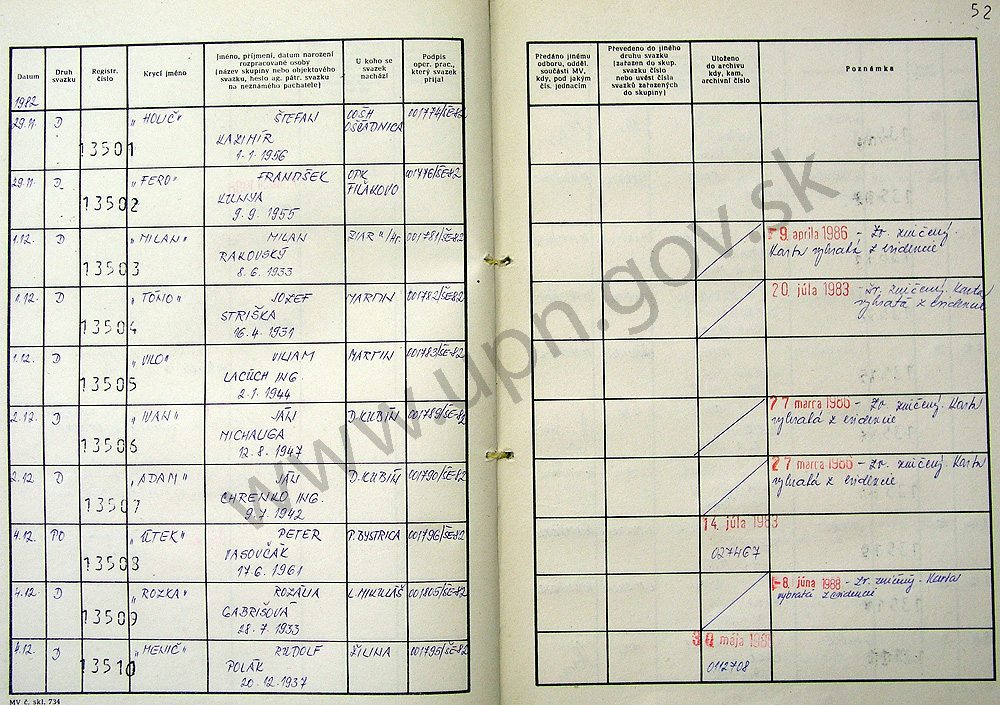 52
Datum
Druh
svazku
Registr.
číslo
Krycí jméno
Jméno, příjmení, datum narození
rozpracované osoby
(název skupiny nebo objektového
svazku, heslo ag. pátr. svazku
na neznámého pachatele)
U koho se
svazek
nachází
Podpis
oper. prac.,
který svazek
přijal
Předáno jinému
odboru, odděl.
součásti MV,
kdy, pod jakým
čís. jednacím
Převedeno do jiného
druhu svazku
(zařazen do skup.
svazku číslo
nebo uvést čísla
svazků zařazených
do skupiny)
Uloženo
do archivu
kdy, kam,
archivní číslo
Poznámka
1982
29.11. D 13501 "HOLIČ" ŠTEFAN
KAZIMÍR
1.1.1956
OOŠH
OŠČADNICA
001774/ŠE-82
29.11. D 13502 "FERO" FRANTIŠEK
KUNYA
9.9.1955
OPK
FIĽAKOVO
001776/ŠE-82
1.12. D 13503 "MILAN" MILAN
RAKOVSKÝ
8.6.1933
ŽIAR n/Hr.
001781/ŠE-82
9. apríla 1986 - Zv. zničený.
Karta vybratá z evidencie
1.12. D 13504 "TÓNO" JOZEF
STRIŠKA
16.4.1931
MARTIN
001782/ŠE-82
20. júla 1983 - Zv. zničený. Karta
vybratá z evidencie
1.12. D 13505 "VILO" VILIAM
LACÚCH ING.
2.1.1944
MARTIN
001783/ŠE-82
2.12. D 13506 "IVAN" JÁN
MICHALIGA
12.8.1947
D.KUBÍN
001789/ŠE-82
27 marca 1986 - Zv. zničený. Karta
vybratá z evidencie
2.12 D 13507 "ADAM" JÁN
CHRENKO ING.
9.7.1942
D.KUBÍN
001790/ŠE-82
27 marca 1986 - Zv. zničený. Karta
vybratá z evidencie
4.12. PO 13508 "ÚTEK" PETER
VASOVČÁK
17.6.1961
P.BYSTRICA
001796/ŠE-82
14. júla 1983
027467
4.12. D 13509 "ROZKA" ROZÁLIA
GABRIŠOVÁ
28.7.1933
L.MIKULÁŠ
001805/ŠE-82
8. júna 1988 - Zv. zničený. Karta
vybratá z evidencie
4.12. D 13510 "MENIČ" RUDOLF
POLÁK
20.12.1937
ŽILINA
001795/ŠE-82
30 mája
0112708
MV č. skl. 734
www.upn.gov.sk